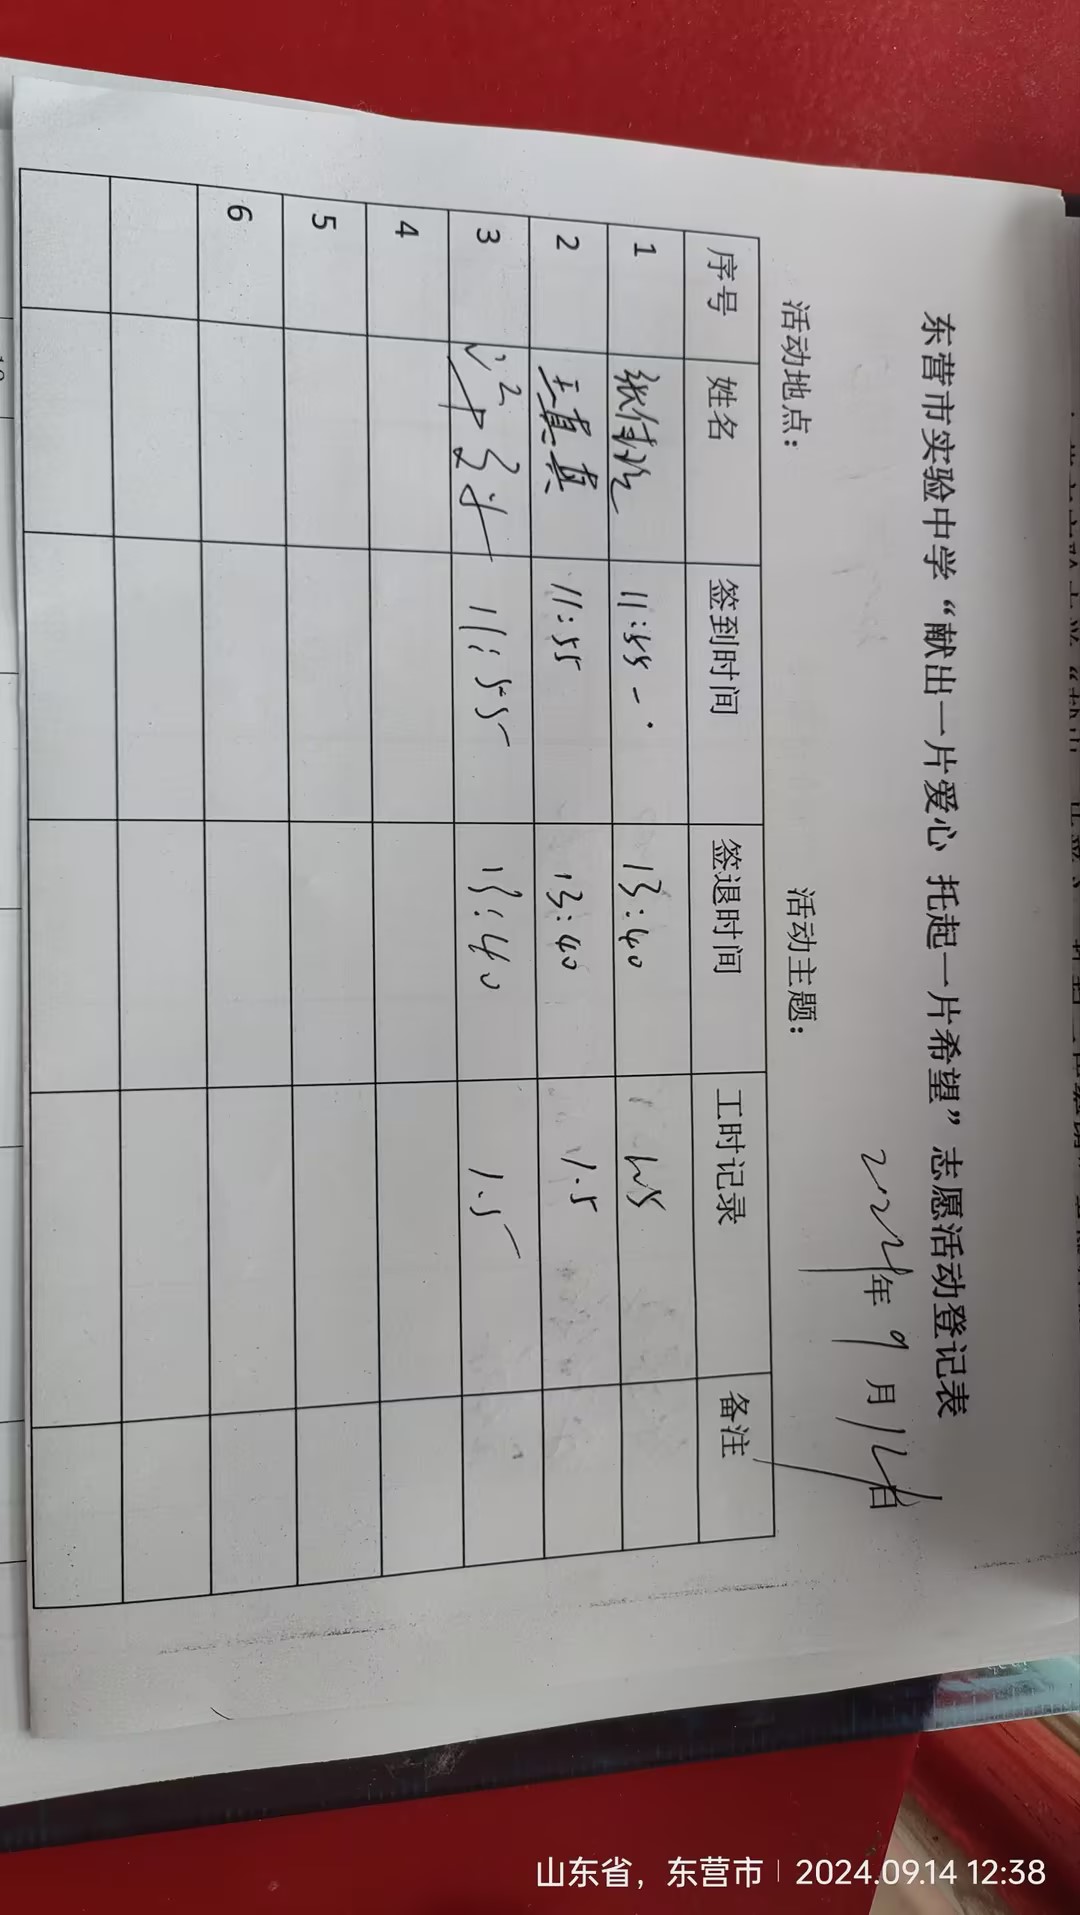 东营市实验中学“献出一片爱心 托起一片希望”志愿活动登记表
2024年 9 月 14日
活动地点： 活动主题：
序号 姓名 签到时间 签退时间 工时记录 备注
1 11:55 13:40 1.5
2 王真真 11:55 13:40 1.5
3 11:55 13:40 1.5
4
5
6
山东省，东营市 2024.09.14 12:38